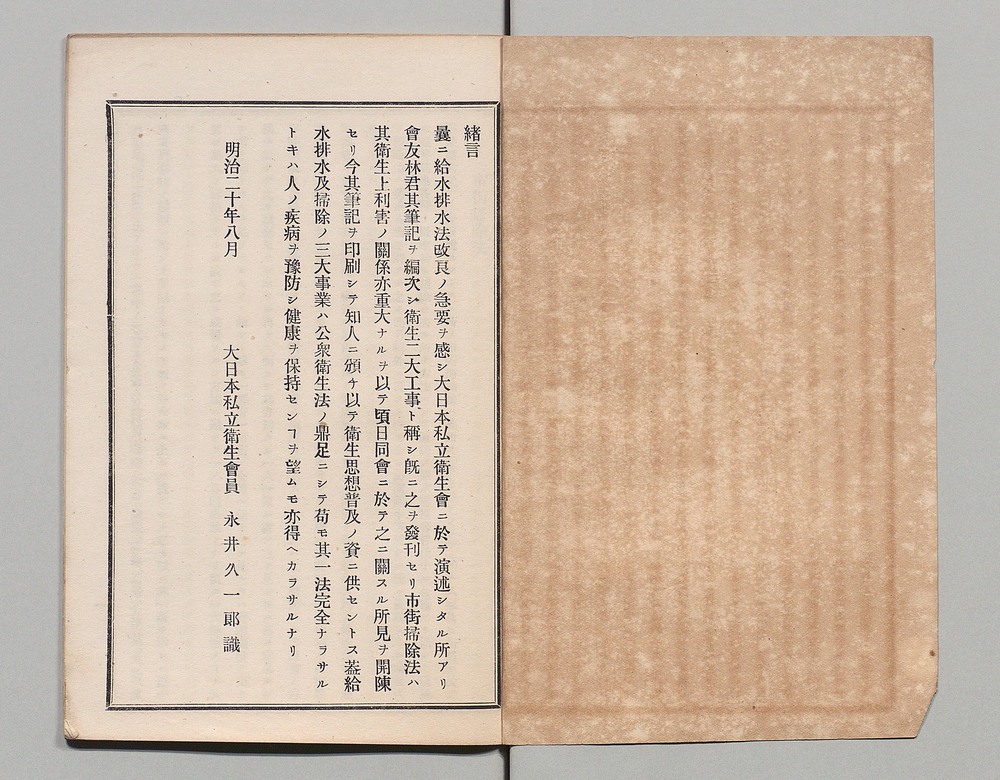 緒言
曩ニ給水排水法改良ノ急要ヲ感シ大日本私立衛生會ニ於テ演述シタル所アリ
會友林君其筆記ヲ編次シ衛生二大工事ト稱シ既ニ之ヲ發刊セリ市街掃除法ハ
其衛生上利害ノ關係亦重大ナルヲ以テ頃日同會ニ於テ之ニ關スル所見ヲ開陳
セリ今其筆記ヲ印刷シテ知人ニ頒チ以テ衛生思想普及ノ資ニ供セントス葢給
水排水及掃除ノ三大事業ハ公衆衛生法ノ鼎足ニシテ苟モ其一法完全ナラサル
トキハ人ノ疾病ヲ豫防シ健康ヲ保持センヿヲ望ムモ亦得ヘカラサルナリ
明治二十年八月
大日本私立衛生會員 永井久一郎識